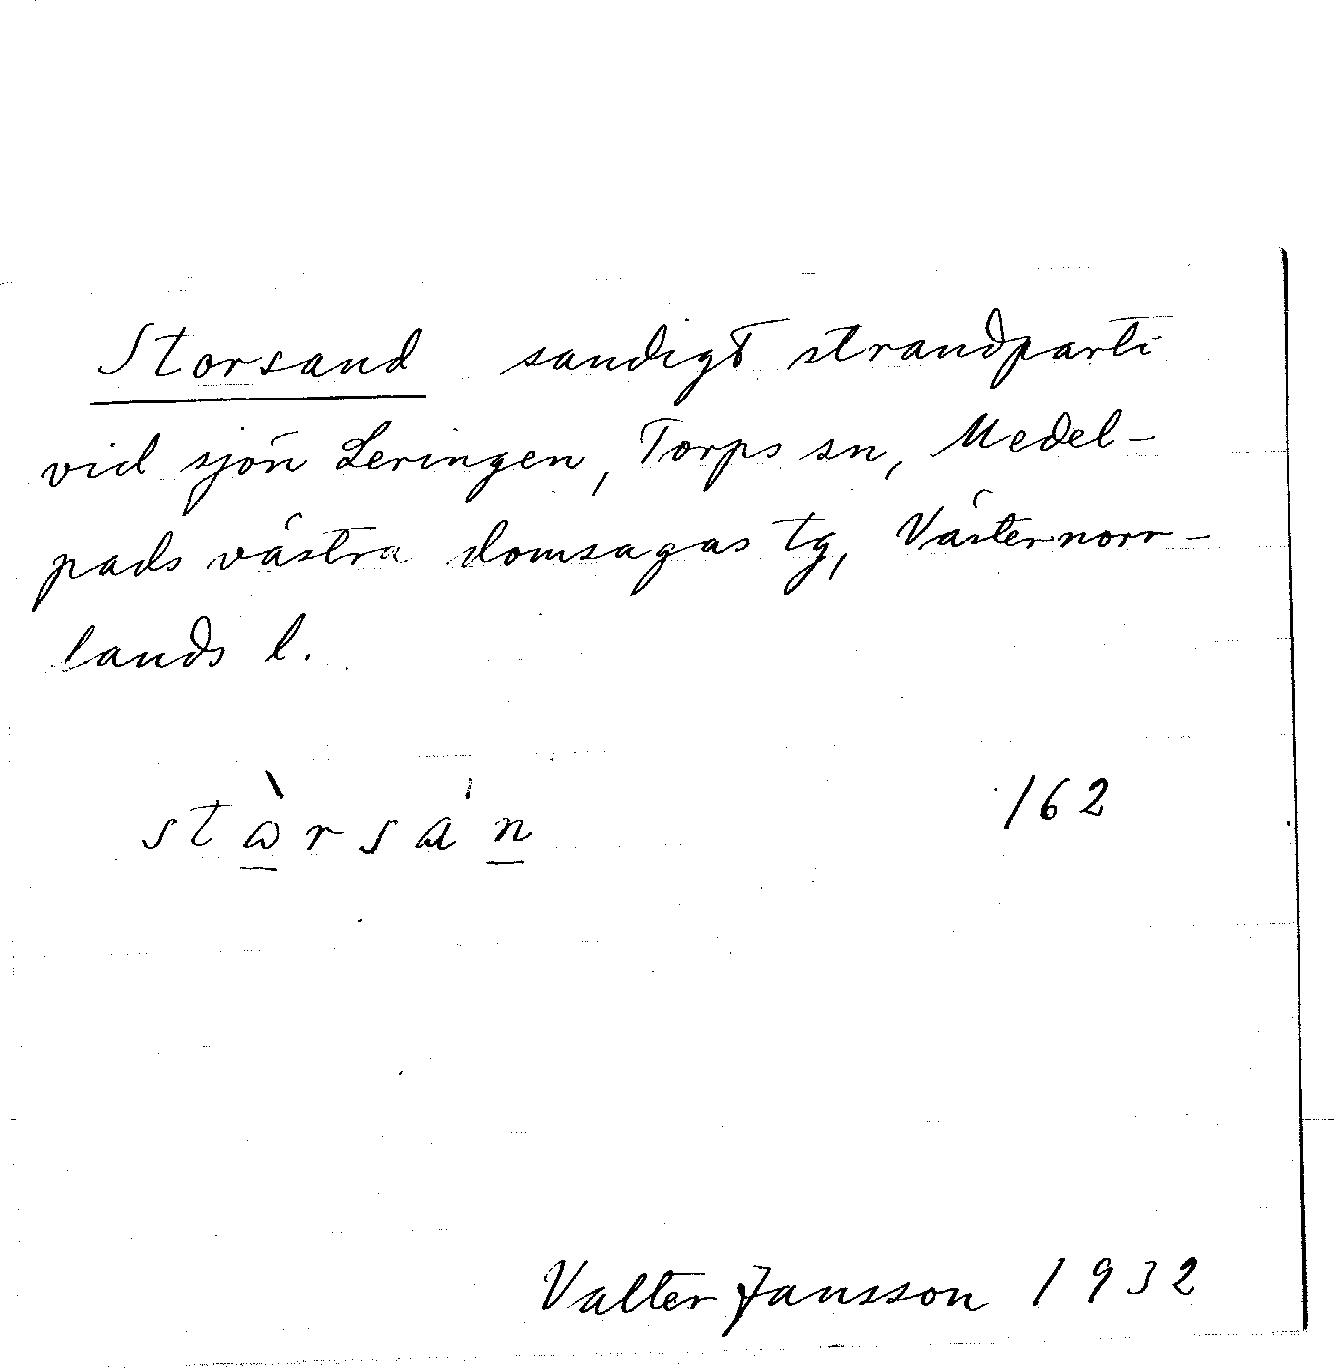 Storsand sandigt strandparti
vid sjön Leringen, Torps sn, Medel-
pads västra domsagas tg, Västernorr-
lands l.
stὼ̲rsa̍n̲ 162
Valter Jansson 1932